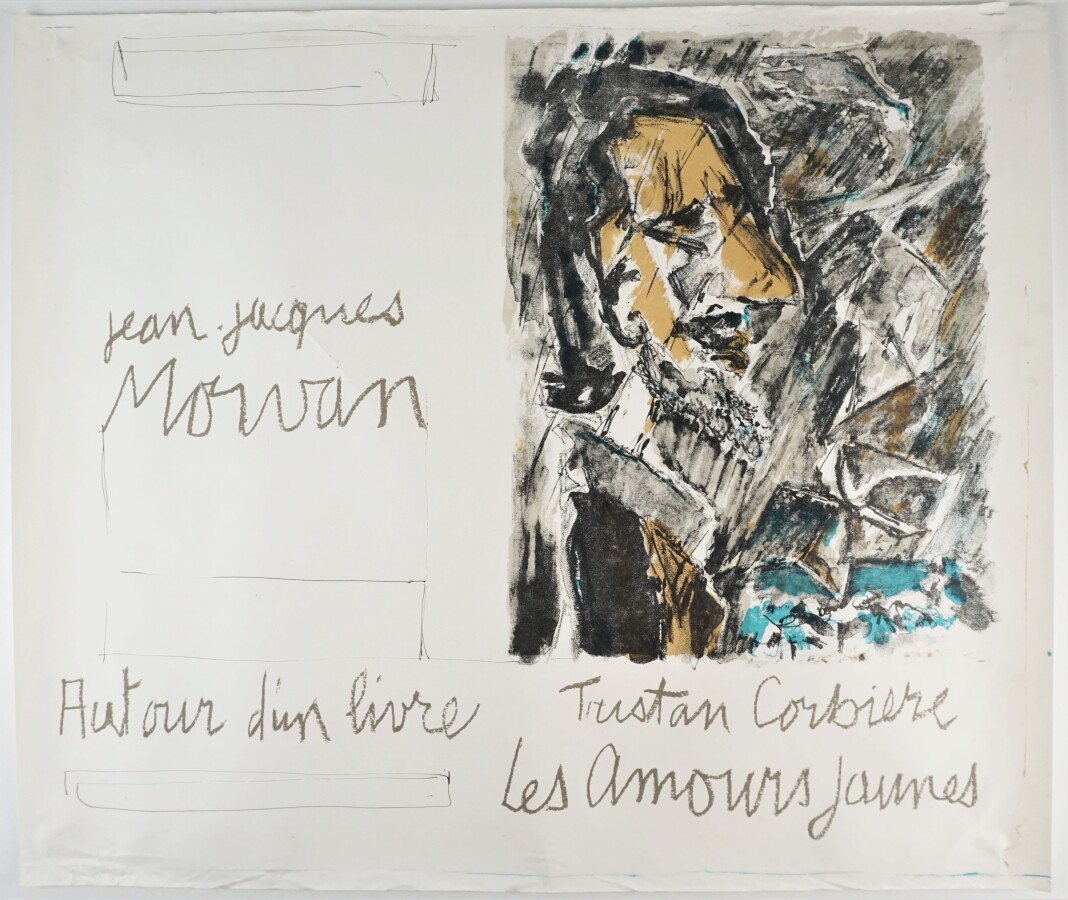 jean.jacques
Morvan
Autour d'un livre
Tristan Corbiere
Les Amours Jaunes